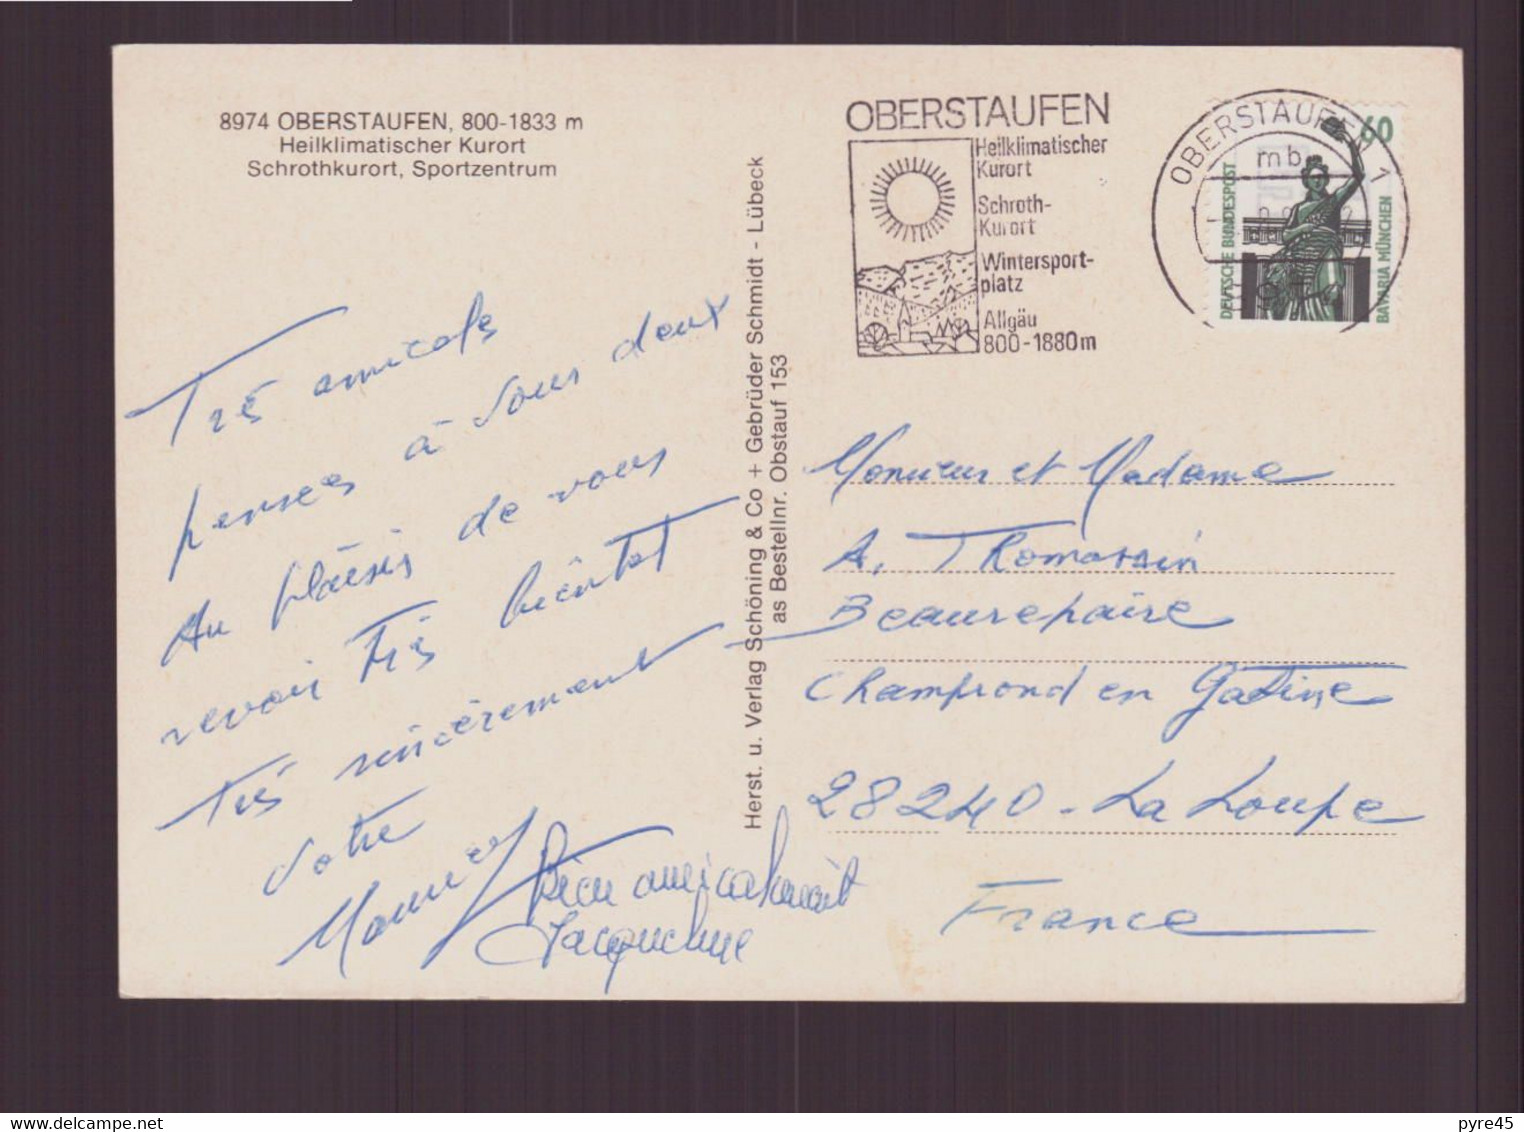 8974 OBERSTAUFEN, 800-1833 m
Heilklimatischer Kurort
Schrothkurort, Sportzentrum
OBERSTAUFEN
Heilklimatischer
Kurort
Schroth-
Kurort
Wintersport-
platz
Allgäu
800-1880m
OBERSTAUFEN 1
mb
60
DEUTSCHE BUNDESPOST
BAVARIA MÜNCHEN
Herst. u. Verlag Schöning & Co + Gebrüder Schmidt - Lübeck
as Bestellnr. Obstauf 153
Très amicales
pensées à vous deux
Au plaisir de vous
revoir très bientôt
Très sincèrement
Votre
Bien amicalement
Jacqueline
Monsieur et Madame
A. Thomassin
Beaurepaire
Champrond en Gatine
28240 - La Loupe
France
pyre45